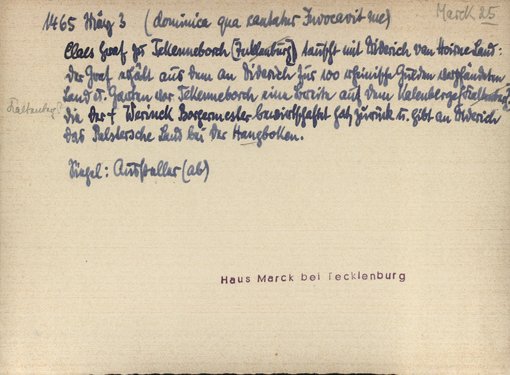 Marck 25
1465 März 3 (dominica qua cantatur Invocavit me)
Claes Graf zu Tekenneborch (Tecklenburg) tauscht mit Diderich van Horne Land:
Der Graf erhält aus dem an Diderich für 100 rheinische Gulden verpfändeten
Land u. Garten vor Tekenneborch eine breite auf dem Kalenberge
Kaltenberg?
die Werneck Borgermester bewirtschaftet hat, zurück u. gibt an Diderich
das Land bei der Hangboken.
Siegel: Aussteller (ab)
Haus Marck bei Tecklenburg